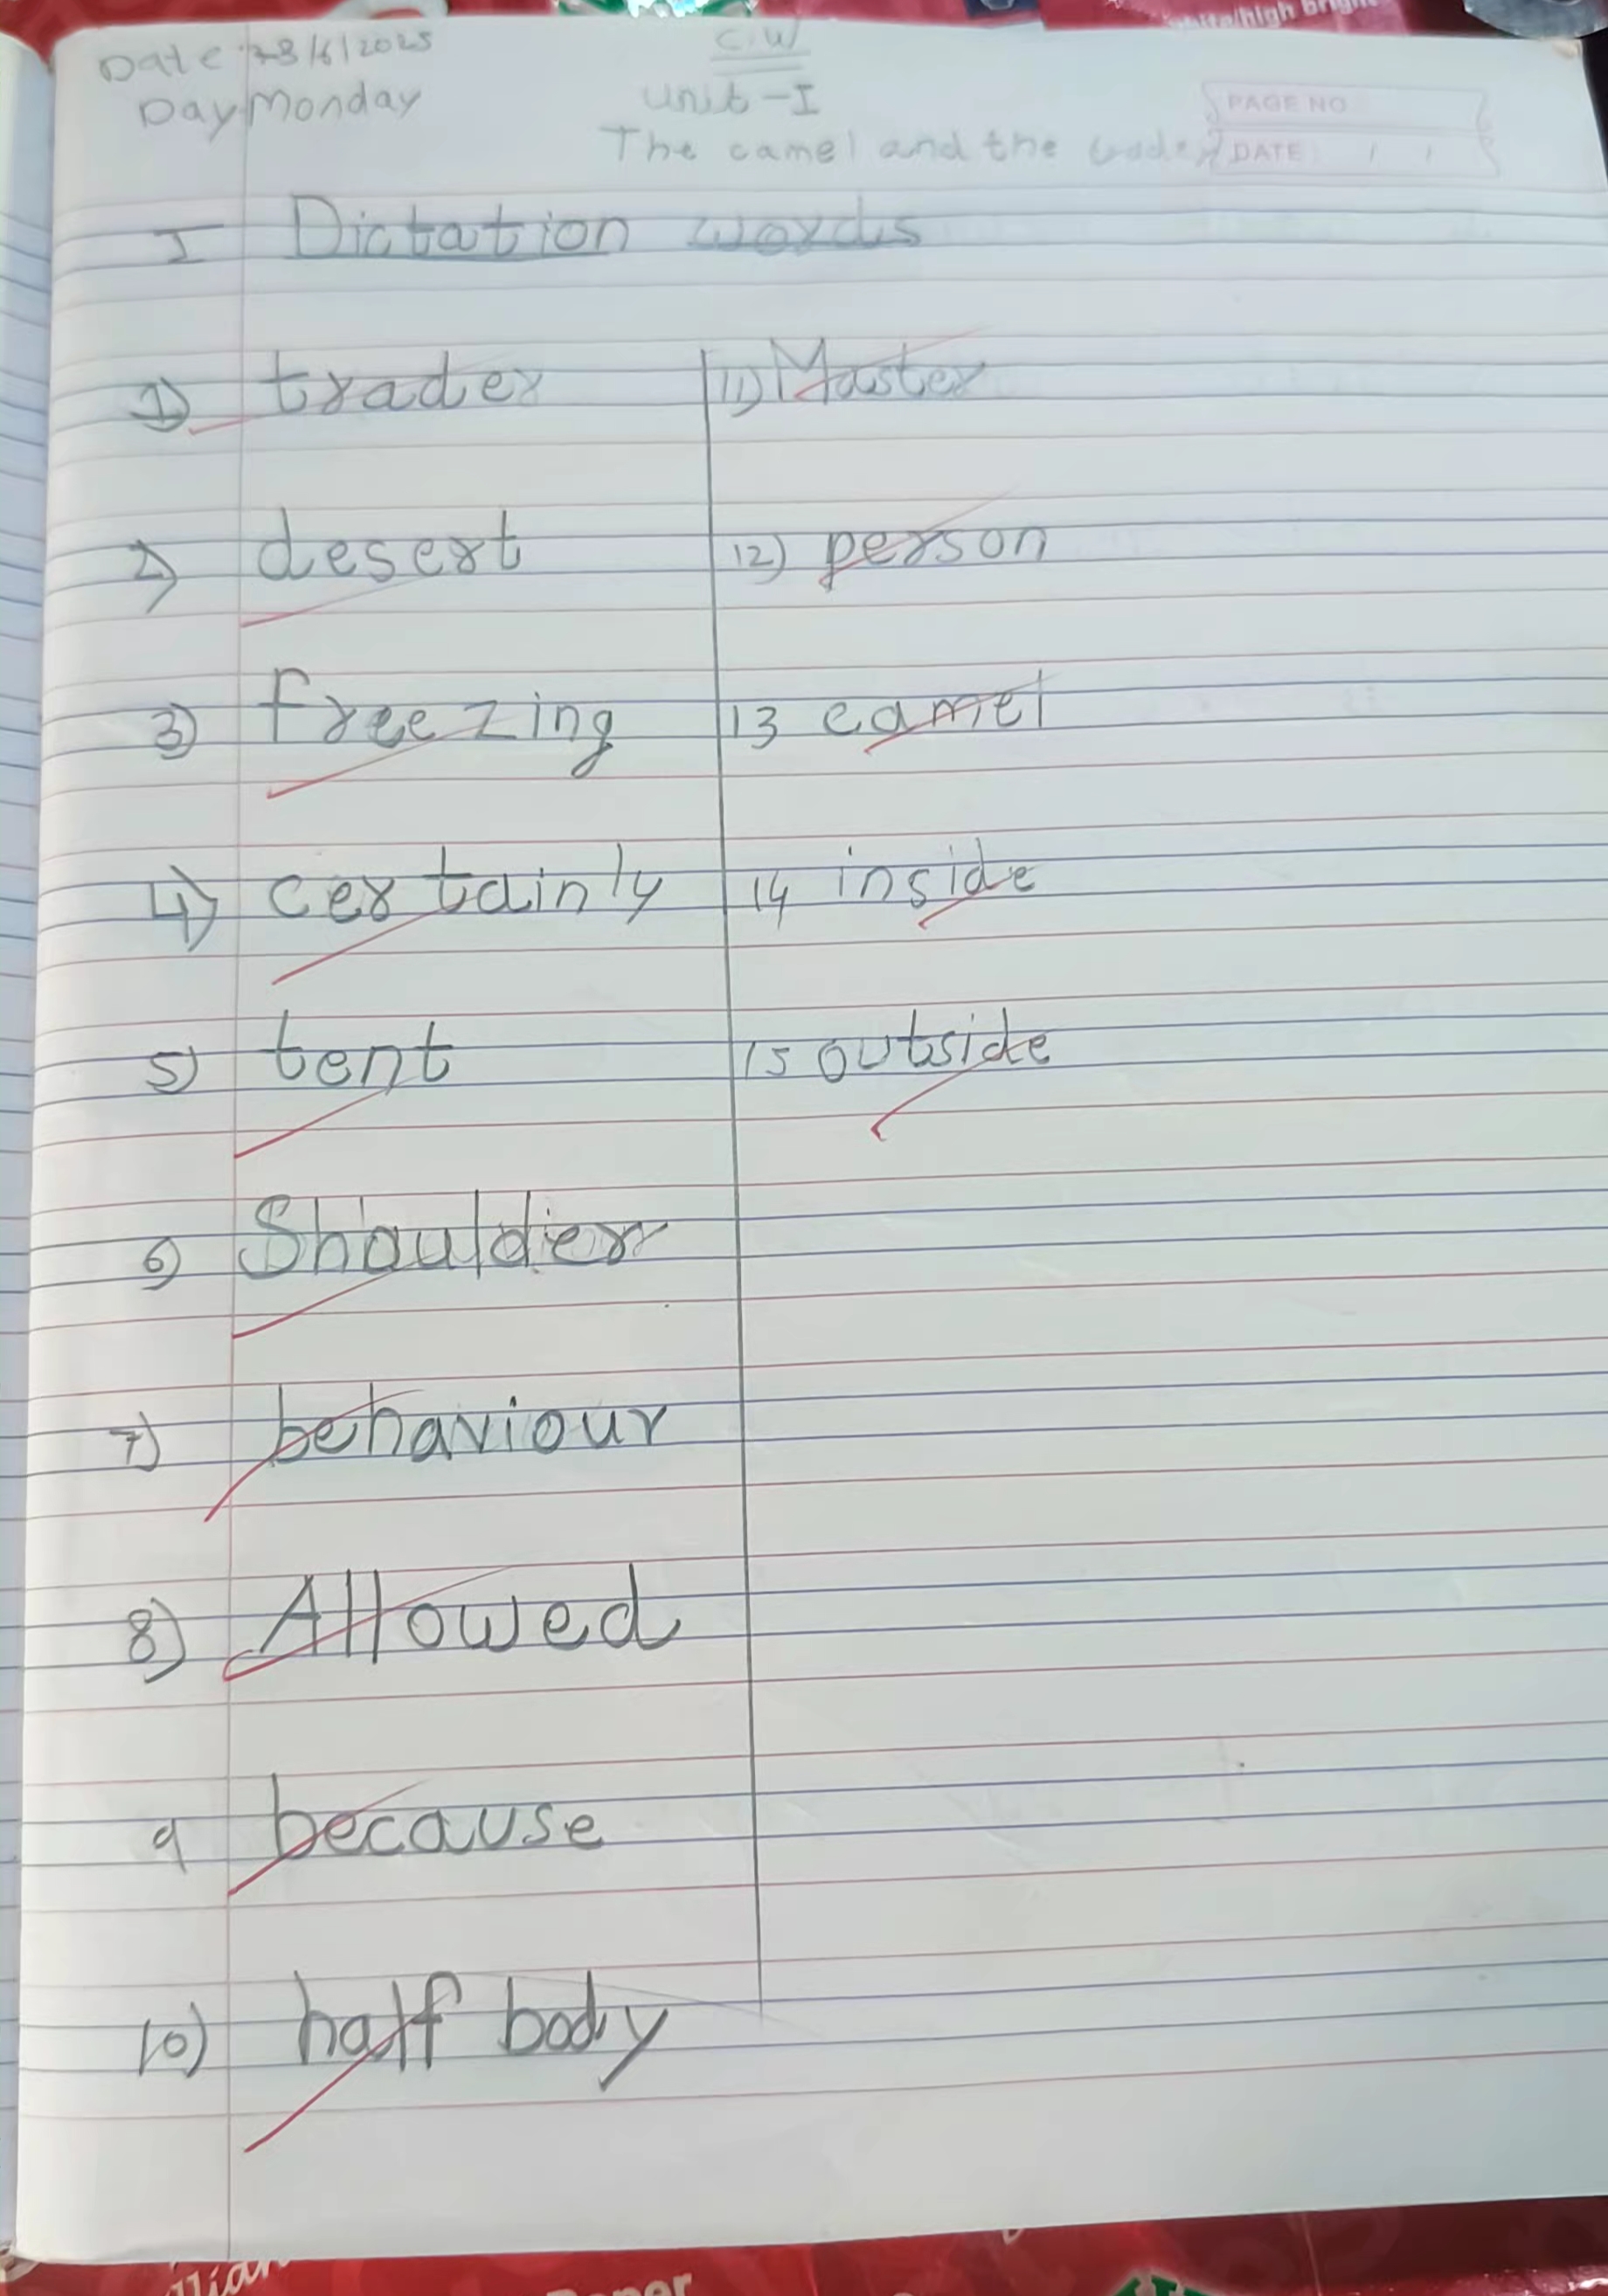 Date 23/6/2025
C.W
Day Monday
Unit-I
The camel and the trader
PAGE NO
DATE / /
I Dictation words
1) trader
2) desert
3) freezing
4) certainly
5) tent
6) Shoulder
7) behaviour
8) Allowed
9 because
10) half body
11) Master
12) person
13 camel
14 inside
15 outside